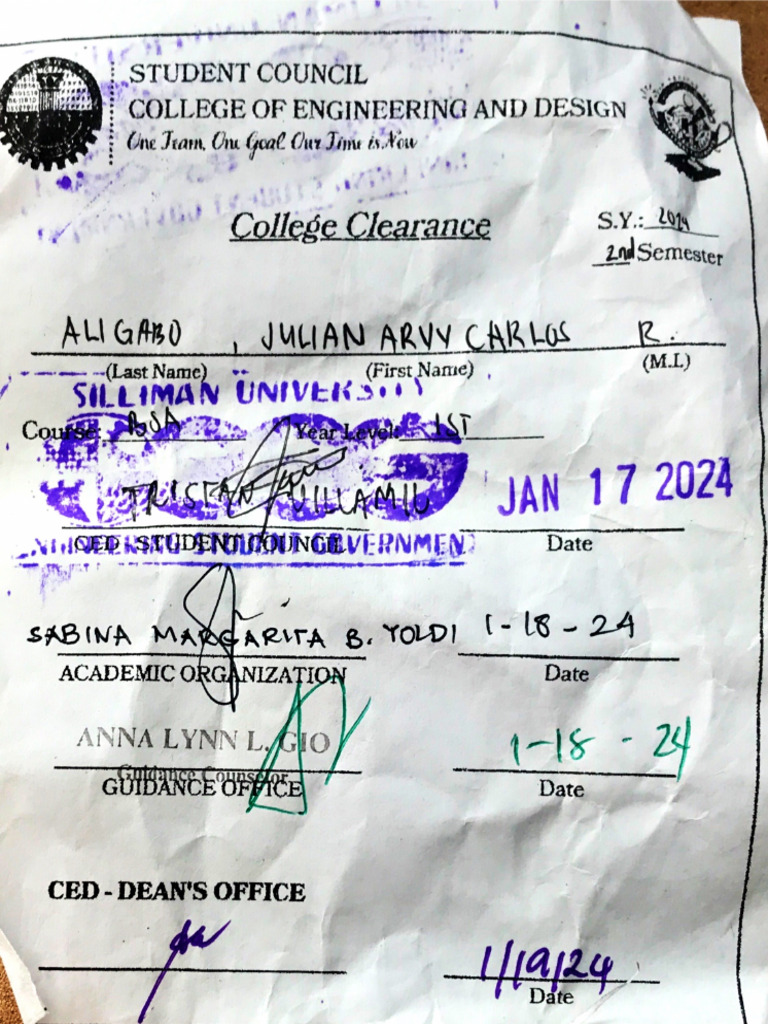 STUDENT COUNCIL
COLLEGE OF ENGINEERING AND DESIGN
One Team, One Goal Our Time is Now
College Clearance
S.Y.: 2024
2nd Semester
ALIGABO, JULIAN ARVY CARLOS R.
(Last Name) (First Name) (M.I.)
SILLIMAN UNIVERSITY
Course: Year Level: 1ST
TRISTAN VILLAMIL JAN 17 2024
CED - STUDENT COUNCIL Date
SABINA MARGARITA B. YOLDI 1-18-24
ACADEMIC ORGANIZATION Date
ANNA LYNN L. GIO 1-18-24
Guidance Counselor
GUIDANCE OFFICE Date
CED - DEAN'S OFFICE
1/19/24
Date